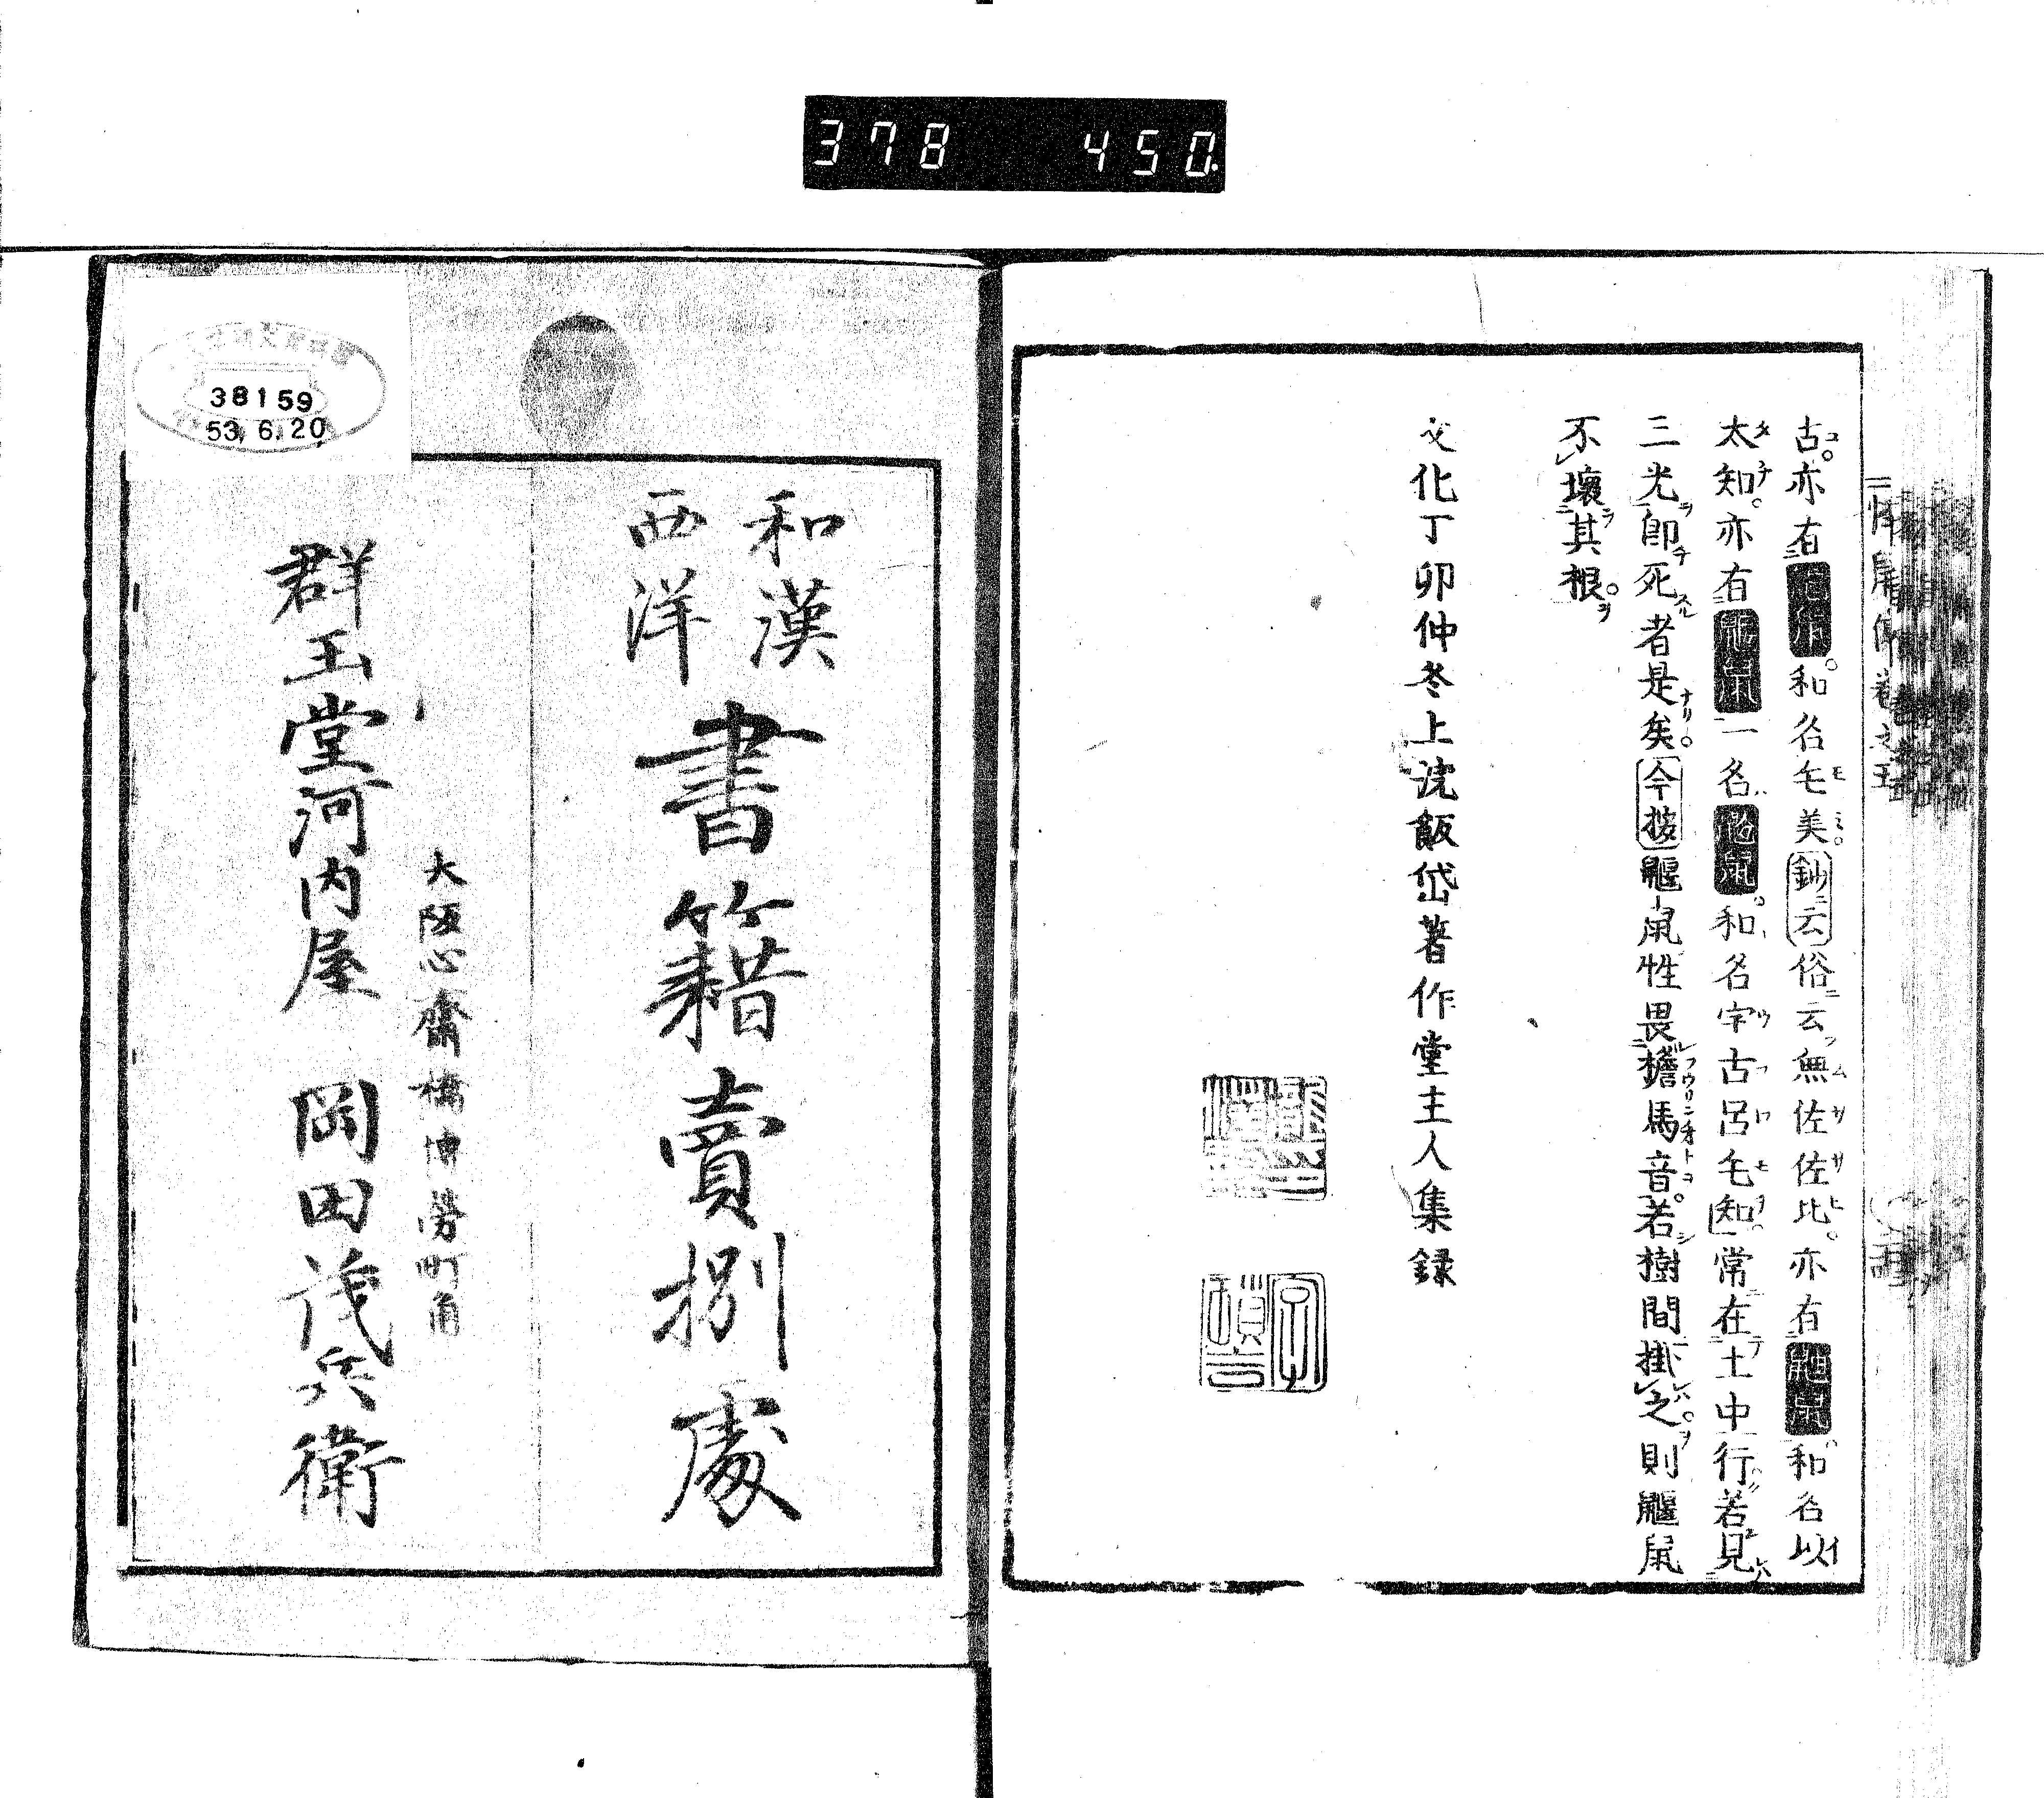 378 450
古亦有
和名乇美鈔云俗云無佐佐比亦有鼯鼠和名以
太知亦有鼴鼠一名鼢鼠和名宇古呂毛知常在土中行若見
三光即死者是矣今按鼴鼠性畏檐馬音若樹間掛之則鼴鼠
不壞其根
文化丁卯仲冬上浣飯岱著作堂主人集録
和漢
西洋
書籍賣捌處
大阪心齋橋博労町角
群玉堂河内屋 岡田茂兵衛
38159
53.6.20